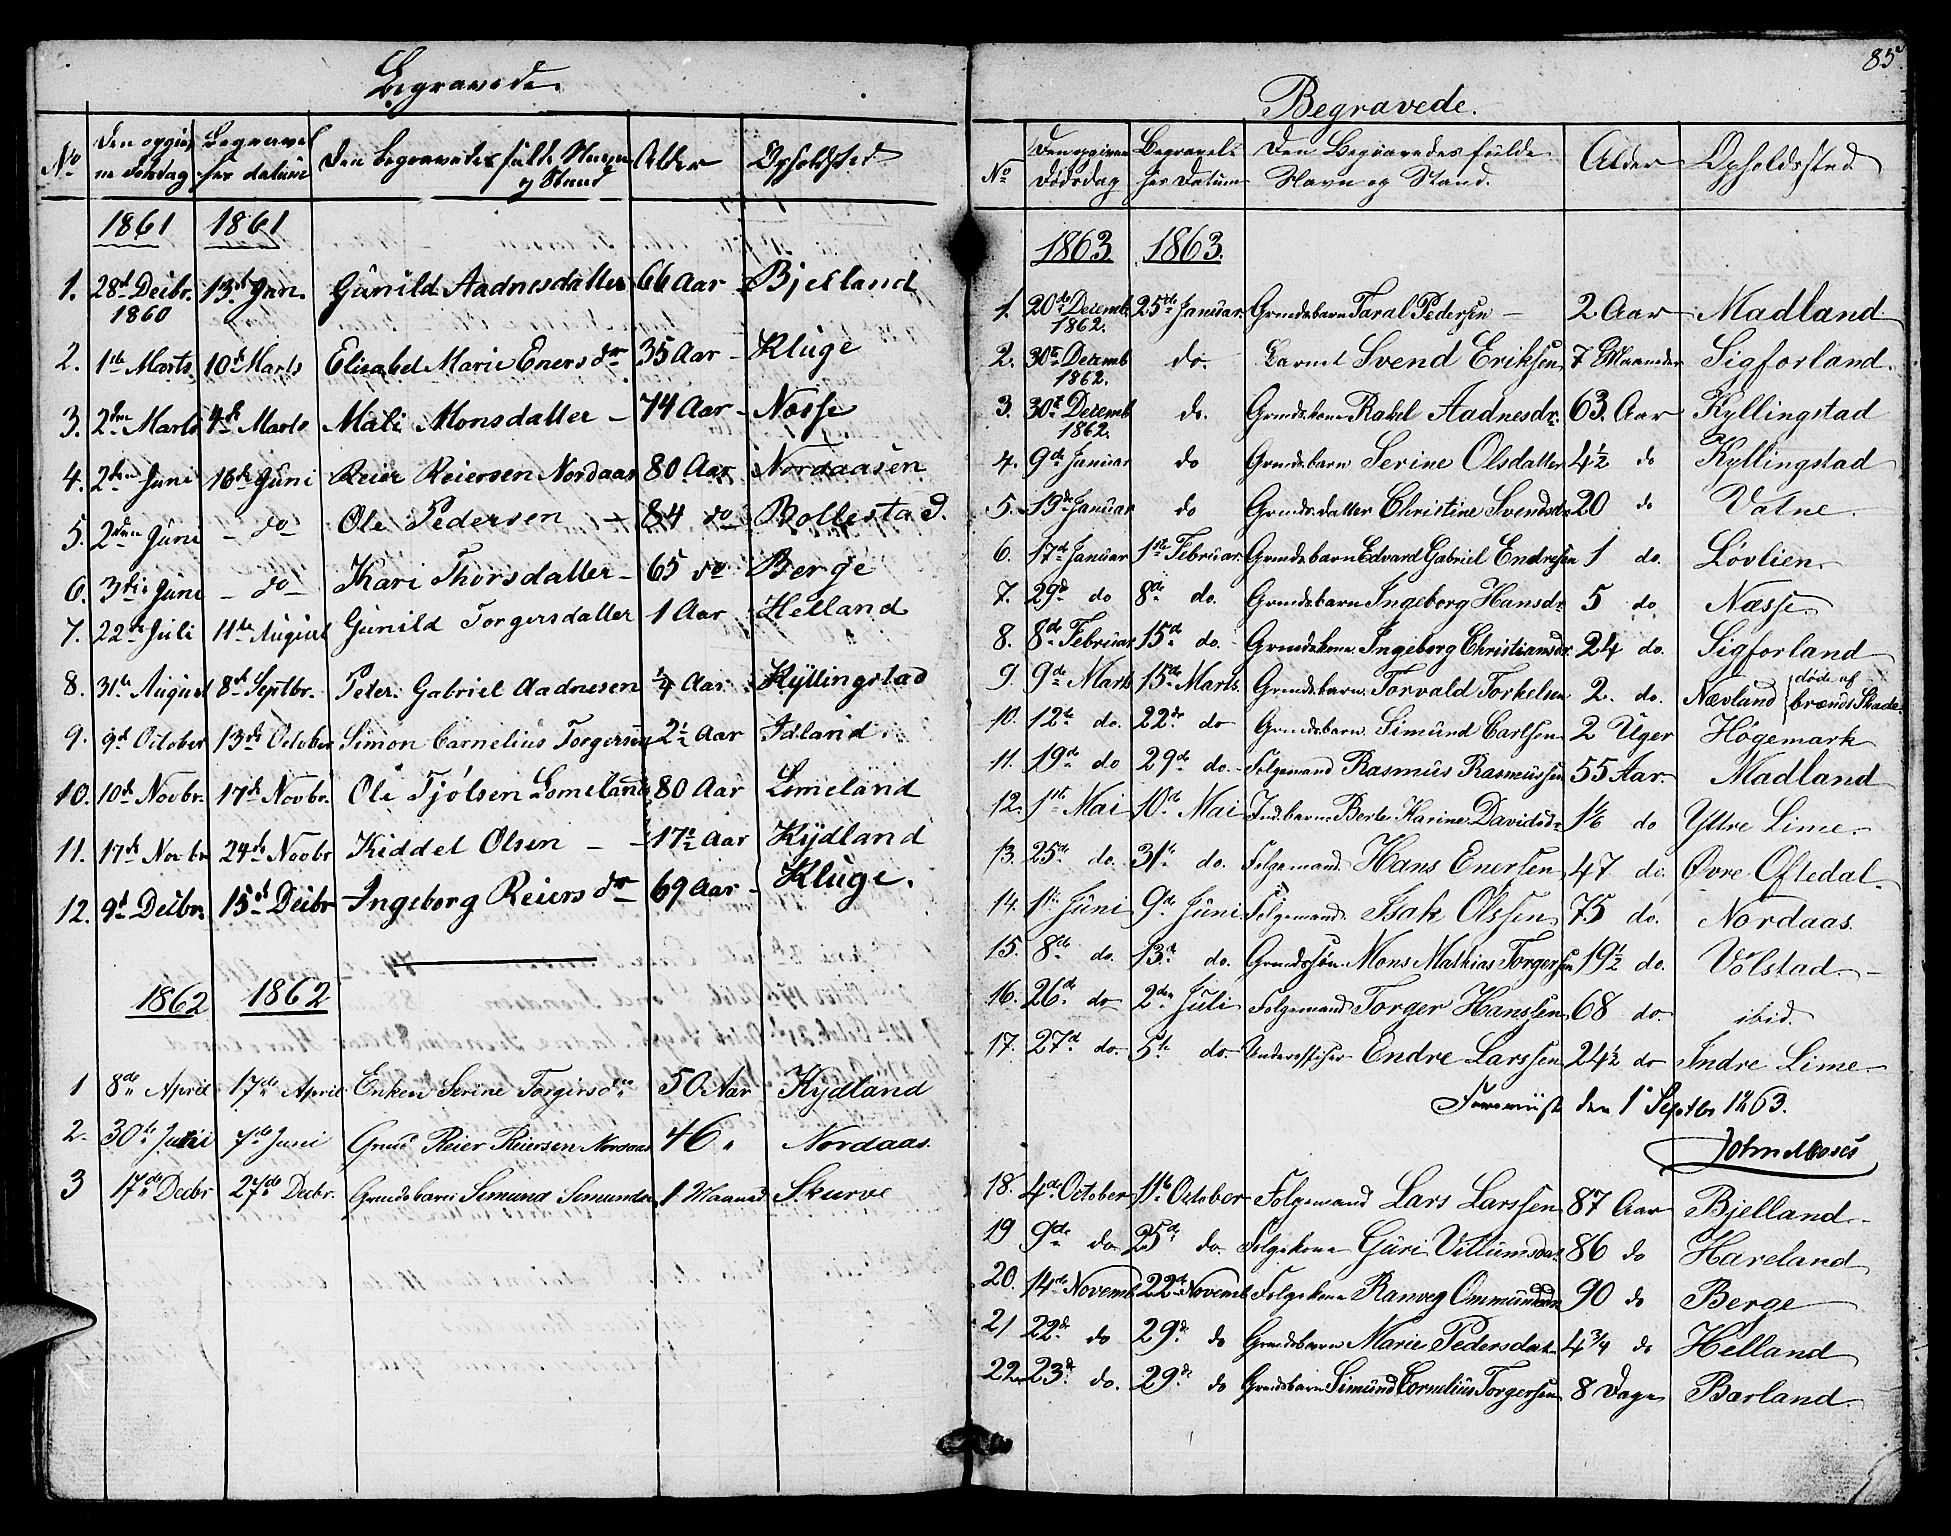 Begravede.
No | Den opgiv- | Begravel- | Den begravedes fulde Navn | Alder | Opholdsted
ne Dødsdag | ses datum | og Stand
1861 | 1861
1. | 28de Decbr. 1860 | 13de Jan. | Gunild Aadnesdatter | 66 Aar | Bjelland
2. | 1ste Marts | 10de Marts | Elisabet Marie Eners dr | 35 Aar | Kluge
3. | 2den Marts | 4de Marts | Mali Monsdatter | 74 Aar | Nosse
4. | 2den Juni | 16de Juni | Reier Reiersen Nordaas | 80 Aar | Nordaasen
5. | 2den Juni | do | Ole Pedersen | 84 do | Bollestad.
6. | 3die Juni | do | Kari Thorsdatter | 65 do | Berge
7. | 22de Juli | 11te August | Gunild Torgersdatter | 1 Aar | Helland
8. | 31te August | 8de Septbr. | Peter Gabriel Aadnesen | ¼ Aar | Kyllingstad
9. | 9de October | 13de October | Simon Carnelius Torgersen | 2½ Aar | Idland
10. | 10de Novbr. | 17de Novbr. | Ole Tjølsen Lomeland | 80 Aar | Lomeland
11. | 17de Novbr | 24de Novbr | Kiddel Olsen | 17½ Aar | Kydland
12. | 9de Decbr. | 15de Decbr | Ingeborg Reiers dr | 69 Aar | Kluge.
1862 | 1862
1 | 8de April | 17de April | Enken Serine Torgersdr | 50 Aar | Kydland
2. | 30te Juni | 7de Juni | Gmd Reier Reiersen Nordaas | 46 " | Nordaas.
3 | 17de Decbr | 27de Decbr. | Gmdsbarn Simund Simunden | 1 Maaned | Skurve
85
Begravede.
No | Den opgivne | Begravel- | Den Begravedes fulde | Alder | Opholdssted
Dødsdag | ses Datum | Navn og Stand.
1863 | 1863.
1. | 20de Decemb. 1862. | 25de Januar. | Gmdsbarn Taral Pedersen | 2 Aar | Madland
2. | 30te Decemb 1862. | do. | Barnet Svend Eriksen | 7 Maaneder | Sigforland.
3. | 30te Decemb 1862. | do. | Gmdskone Rakel Aadnesdr. | 63. Aar | Kyllingstad
4. | 9de Januar | do | Gmdsbarn Serine Olsdatter | 4½ do | Kyllingstad
5. | 19de Januar | do | Gmds.datter Christine Svendsdr | 20 do | Vatne.
6. | 17de Januar | 1ste Februar. | Gmdsbarn Edvard Gabriel Endresen | 1 do. | Løvlien.
7. | 29de do | 8de do. | Gmdsbarn Ingeborg Hansdr | 5 do | Næsse.
8. | 8de Februar | 15de do. | Gmdskone Ingeborg Christiansdr. | 24 do. | Sigforland
9. | 9de Marts | 15de Marts. | Gmdsbarn Torvald Torkelsen | 2. do. | Nævland døde af brændt Skade.
10. | 12te do. | 22de do | Gmdsbarn Simund Carlsen | 2 Uger | Høgemark
11. | 19de do | 29de do. | Folgemand Rasmus Rasmussen | 55 Aar | Madland
12. | 1ste Mai | 10de Mai | Inds.barn Berte Karine Davidsdr | 1⅙ do | Yttre Lime.
13. | 25de do. | 31te do. | Folgemand Hans Enersen | 47 do. | Øvre Oftedal.
14. | 1ste Juni | 9de Juni | Folgemand Isak Olssen | 75 do. | Nordaas.
15. | 8de do. | 13de do. | Gmdssøn Mons Mathias Torgersen | 19½ do. | Vølstad
16. | 26de do | 2den Juli | Folgemand Torger Hanssen | 68 do. | ibid.
17. | 27de do. | 5te do. | Underoffiser Endre Larssen | 24½ do | Indre Lime.
den 1 Septbr 1863.
18. | 4de October | 11te October | Folgemand Lars Larssen | 87 Aar | Bjelland.
19 | 9de do | 25de do | Folgekone Guri Villumsdat. | 86 do | Hareland
20. | 14de Novemb. | 22de Novemb | Folgekone Ranveg Ommundsdr | 90 do | Berge
21 | 22de do | 29de do | Gmdsbarn Marie Pedersdatr | 4¾ do | Helland
22. | 23de do. | 29de do | Gmdsbarn Simund Cornelius Torgersen | 8 Dage | Barland.